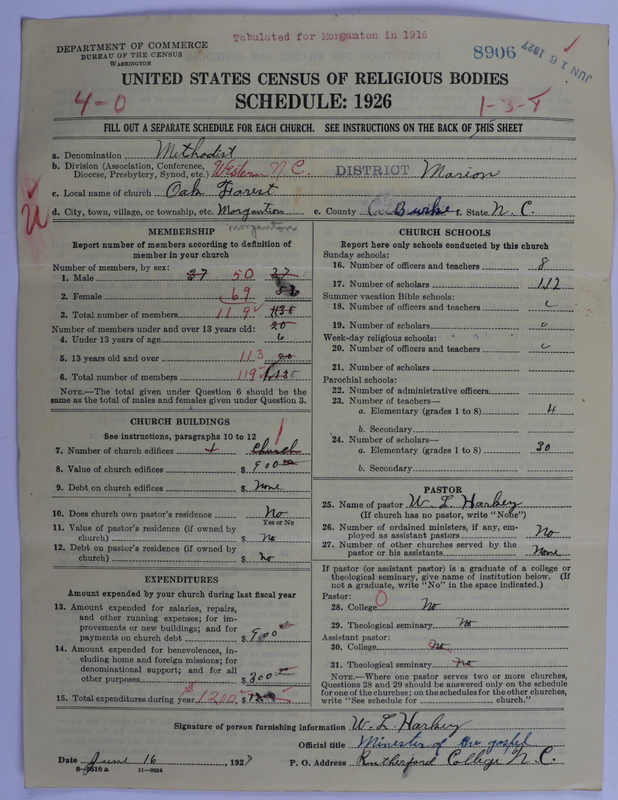 Tabulated for Morganton in 1916
DEPARTMENT OF COMMERCE
BUREAU OF THE CENSUS
WASHINGTON
8906
JUN 16 1927
UNITED STATES CENSUS OF RELIGIOUS BODIES
4-0
SCHEDULE: 1926
FILL OUT A SEPARATE SCHEDULE FOR EACH CHURCH. SEE INSTRUCTIONS ON THE BACK OF THIS SHEET
a. Denomination Methodist
b. Division (Association, Conference, Diocese, Presbytery, Synod, etc.) Western N.C. DISTRICT Marion
c. Local name of church Oak Forest
d. City, town, village, or township, etc. Morgantion e. County Burke f. State N. C.
Morganton
MEMBERSHIP
Report number of members according to definition of
member in your church
Number of members, by sex:
1. Male 37 50
2. Female 69
3. Total number of members 119
Number of members under and over 13 years old:
4. Under 13 years of age 6
5. 13 years old and over 113
6. Total number of members 119
NOTE.—The total given under Question 6 should be the
same as the total of males and females given under Question 3.
CHURCH BUILDINGS
See instructions, paragraphs 10 to 12
7. Number of church edifices 1 Church
8. Value of church edifices $ 900 00
9. Debt on church edifices $ None
10. Does church own pastor's residence No
Yes or No
11. Value of pastor's residence (if owned by
church) $ no
12. Debt on pastor's residence (if owned by
church) $ no
EXPENDITURES
Amount expended by your church during last fiscal year
13. Amount expended for salaries, repairs,
and other running expenses; for im-
provements or new buildings; and for
payments on church debt $ 900
14. Amount expended for benevolences, in-
cluding home and foreign missions; for
denominational support; and for all
other purposes $ 300
15. Total expenditures during year 1200 $
CHURCH SCHOOLS
Report here only schools conducted by this church
Sunday schools:
16. Number of officers and teachers 8
17. Number of scholars 112
Summer vacation Bible schools:
18. Number of officers and teachers
19. Number of scholars
Week-day religious schools:
20. Number of officers and teachers
21. Number of scholars
Parochial schools:
22. Number of administrative officers
23. Number of teachers—
a. Elementary (grades 1 to 8) 4
b. Secondary
24. Number of scholars—
a. Elementary (grades 1 to 8) 30
b. Secondary
PASTOR
25. Name of pastor W. L. Harkey
(If church has no pastor, write "None")
26. Number of ordained ministers, if any, em-
ployed as assistant pastors No
27. Number of other churches served by the
pastor or his assistants None
If pastor (or assistant pastor) is a graduate of a college or
theological seminary, give name of institution below. (If
not a graduate, write "No" in the space indicated.)
Pastor:
28. College 0 No
29. Theological seminary No
Assistant pastor:
30. College No
31. Theological seminary No
NOTE.—Where one pastor serves two or more churches,
Questions 28 and 29 should be answered only on the schedule
for one of the churches; on the schedules for the other churches,
write "See schedule for church."
Signature of person furnishing information W. L. Harkey
Official title Minister of the gospel
Date June 16, 1927 P. O. Address Rutherford College N. C.
11—9054